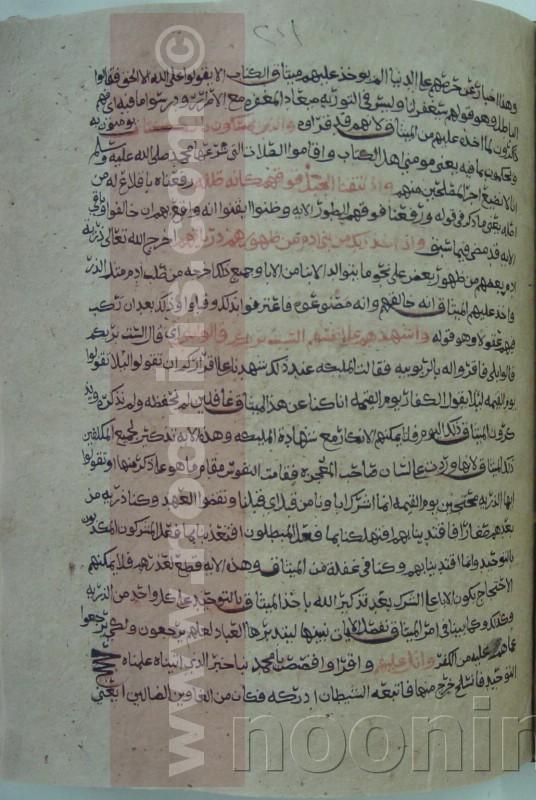 وهذا اخبار عن حرصهم على الدنيا الم يوخذ عليهم ميثاق الكتاب الا يقولوا على الله الا الحق فقالوا
الباطل وهو قولهم سيغفر لنا وليس في التورية ميعاد المغفرة مع الاصرار ودرسوا ما فيه اي فهم
ذاكرون لما اخذ عليهم من الميثاق لانهم قد قراوه والذين يمسكون بالكتاب يومنون به
ويحكمون بما فيه يعني مومني اهل الكتاب واقاموا الصلاة التي شرعها محمد صلى الله عليه وسلم
انا لا نضيع اجر المصلحين منهم واذ نتقنا الجبل فوقهم كانه ظلة رفعناه باقتلاع له من
اصله يعني ما ذكر في قوله ورفعنا فوقهم الطور الاية وظنوا ايقنوا انه واقع بهم ان خالفوا وباقي
الاية قد مضى فيما سبق واذ اخذ ربك من بني ادم من ظهورهم ذرياتهم اخرج الله تعالى ذرية
ادم بعضهم من ظهور بعض على نحو ما يتوالد الابنا من الابا وجميع ذلك اخرجه من صلب ادم مثل الذر
واخذ عليهم الميثاق انه خالقهم وانه مصنوعون فاعترفوا بذلك وقبلوا وذلك بعد ان ركب
فيهم عقولا وهو قوله واشهدهم على انفسهم الست بربكم قالوا بلى اي قال الست بربكم
قالوا بلى فاقروا له بالربوبية فقالت الملئكة عند ذلك شهدنا على اقراركم ان تقولوا ليلا تقولوا
يوم القيمة ليلا يقول الكفار يوم القيمة انا كنا عن هذا الميثاق غافلين لم نحفظه ولم نذكره
ذلك الميثاق اليوم فلا يمكنهم الانكار مع شهادة الملئكة وهذه الاية تذكير لجميع المكلفين
ذلك الميثاق لانها وردت على لسان صاحب المعجزة فقامت في النفوس مقام ما هو على ذكر منها او تقولوا
ايها الذرية محتجين يوم القيمة انما اشرك اباونا من قبل اي قبلنا ونقضوا العهد وكنا ذرية من
بعدهم صغارا فاقتدينا بهم افتهلكنا بما فعل المبطلون افتعذبنا بما فعل المشركون المكذبون
بالتوحيد وانما اقتدينا بهم وكنا في غفلة من الميثاق وهذه الاية قطع لعذرهم فلا يمكنهم
الاحتجاج بكون الابا على الشرك بعد تذكير الله باخذ الميثاق بالتوحيد على كل واحد من الذرية
وكذلك وكما بينا في امر الميثاق نفصل الايات نبينها ليتدبرها العباد لعلهم يرجعون ولكي يرجعوا
عما هم عليه من الكفر واتل عليهم واقرا واقصص يا محمد نبا خبر الذي اتيناه علمناه
التوحيد فانسلخ خرج منها فاتبعه الشيطان ادركه فكان من الغاوين الضالين يعني
www.noorlib.com ©
noorin